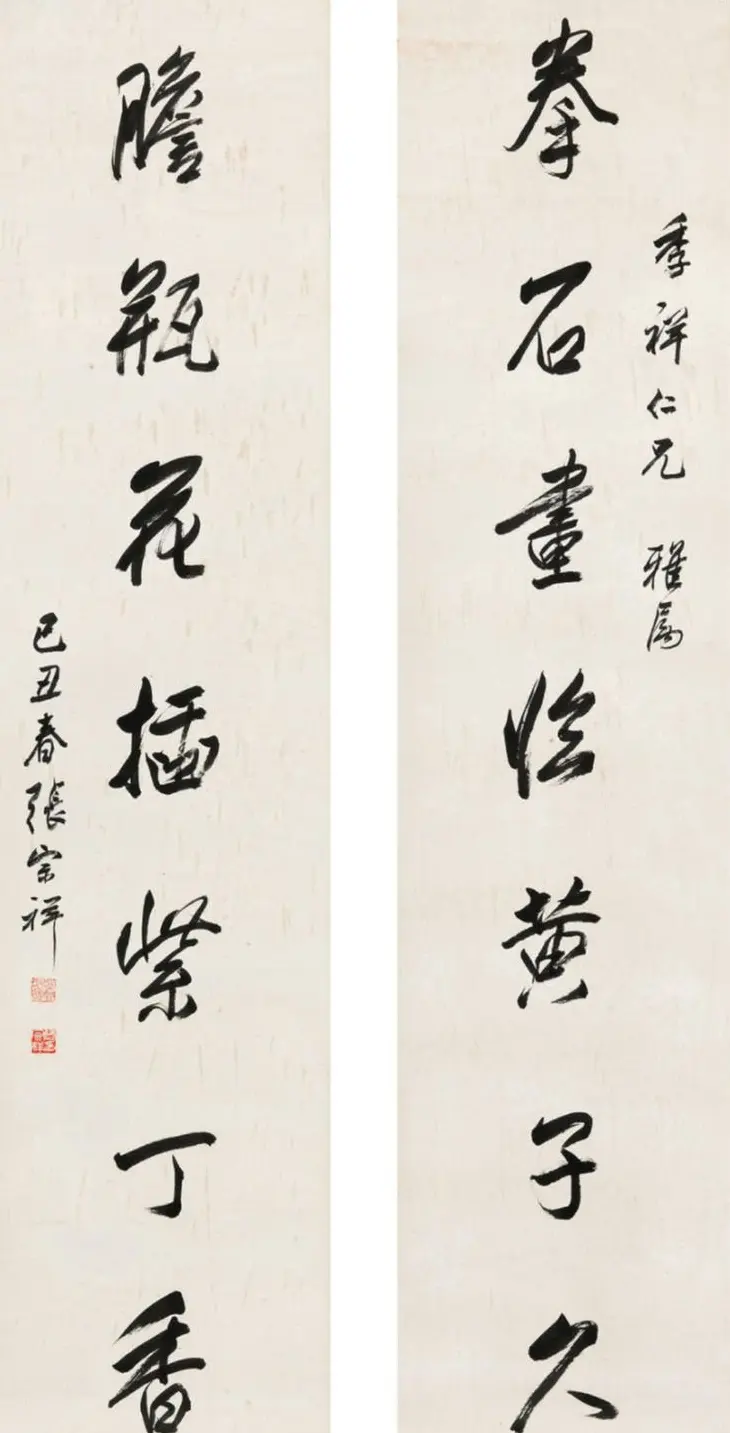 季祥仁兄 雅屬
拳石畫臨黄子久
膽瓶花插紫丁香
己丑春張宗祥